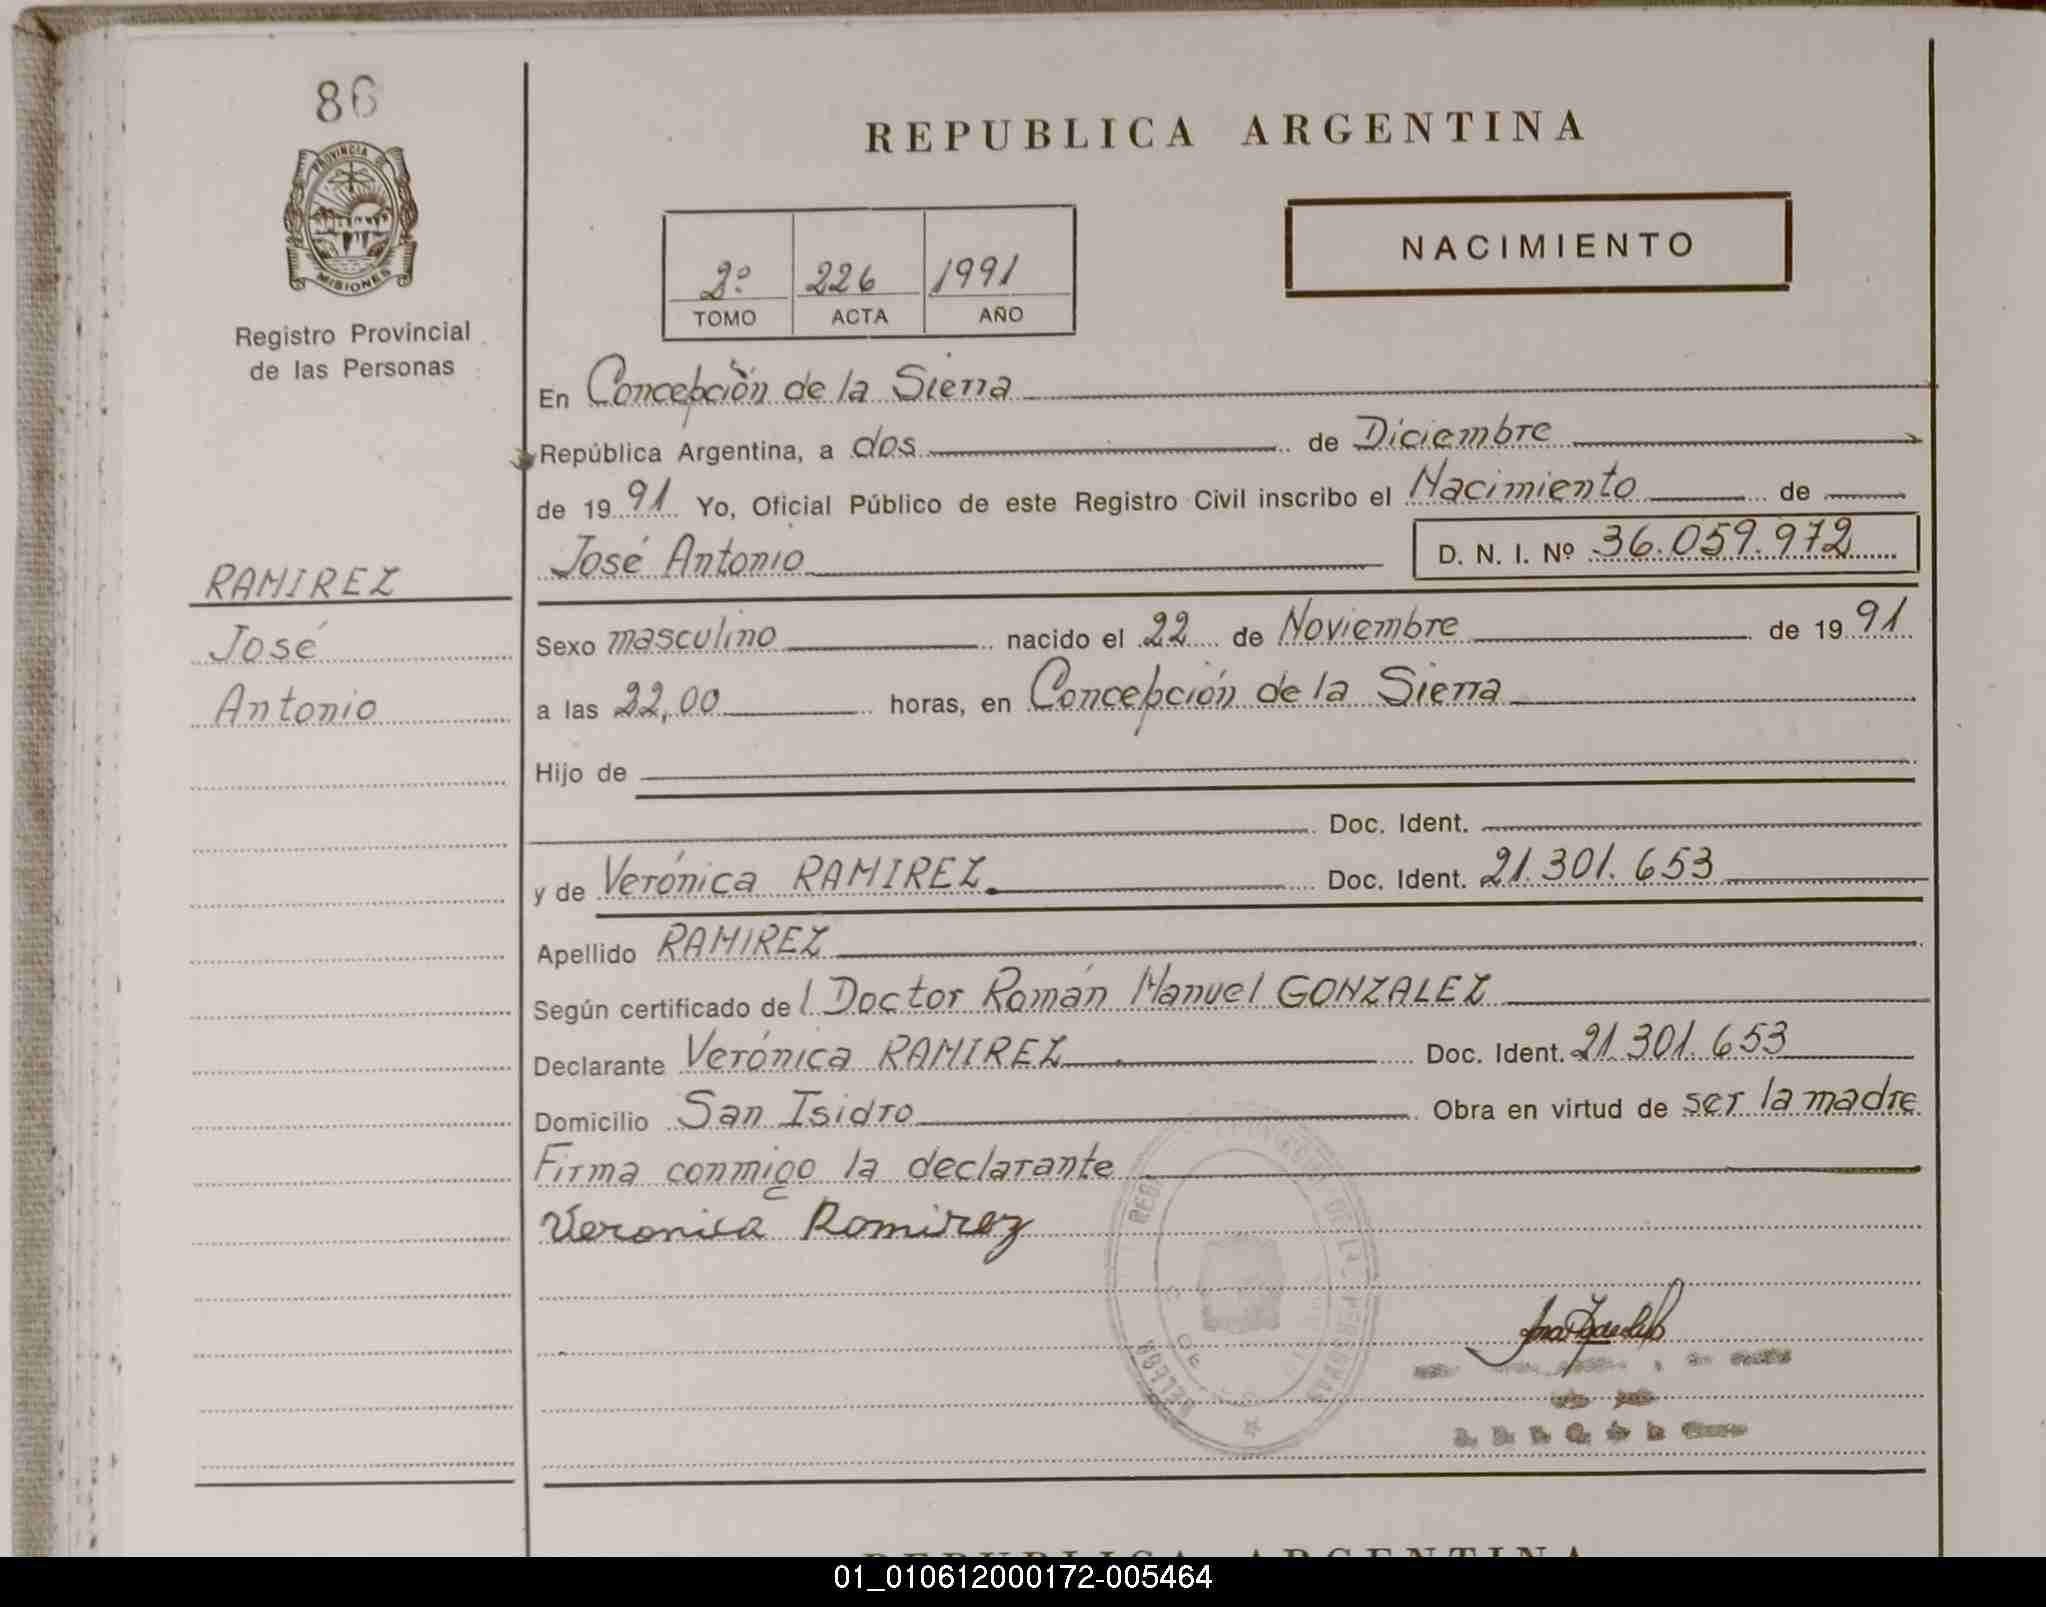 86
PROVINCIA DE
MISIONES
Registro Provincial
de las Personas
RAMIREZ
José
Antonio
REPUBLICA ARGENTINA
NACIMIENTO
2º 226 1991
TOMO ACTA AÑO
En Concepción de la Sierra
República Argentina, a dos de Diciembre
de 1991 Yo, Oficial Público de este Registro Civil inscribo el Nacimiento de
José Antonio D. N. I. Nº 36.059.972
Sexo masculino nacido el 22 de Noviembre de 1991
a las 22,00 horas, en Concepción de la Sierra
Hijo de
Doc. Ident.
y de Verónica RAMIREZ Doc. Ident. 21.301.653
Apellido RAMIREZ
Según certificado del Doctor Román Manuel GONZALEZ
Declarante Verónica RAMIREZ Doc. Ident. 21.301.653
Domicilio San Isidro Obra en virtud de ser la madre
Firma conmigo la declarante
Veronica Ramirez
REPUBLICA ARGENTINA
01_010612000172-005464